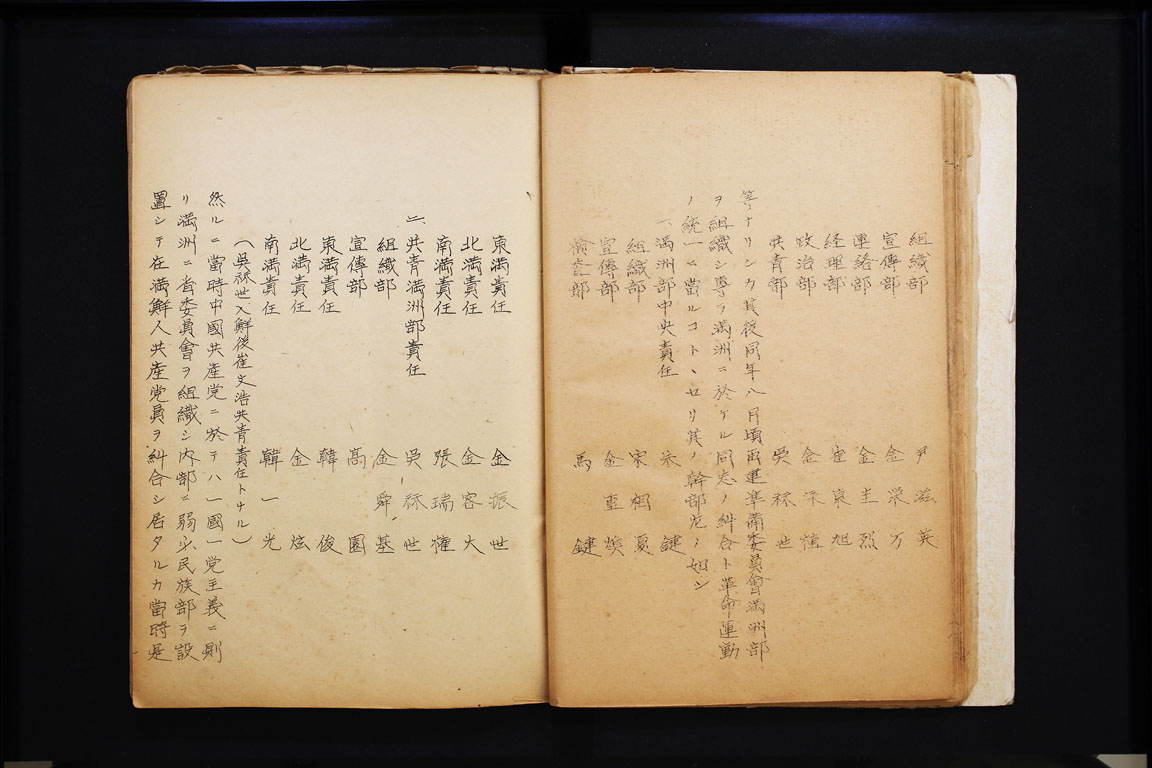 組織部 尹滋英
宣傳部 金泳万
連絡部 金圭烈
経理部 崔東旭
政治部 金榮植
共青部 吳秝世
等ナリシカ其後同年八月頃再建準備委員會満洲部
ヲ組織シ専ラ満洲ニ於ケル同志ノ糾合ト革命運動
ノ統一ニ當ルコトヽセリ其ノ幹部左ノ如シ
一、満洲部中央責任 朱鍵
組織部 宋相夏
宣傳部 金重煥
檢査部 馬鍵
東満責任 金振世
北満責任 金容大
南満責任 張瑞權
二、共青満洲部責任 吳秝世
組織部 金舜基
宣傳部 髙園
東満責任 韓俊
北満責任 金炫
南満責任 韓一光
(吳秝世入鮮後崔文浩共青責任トナル)
然ルニ當時中國共產党ニ於テハ一國一党主義ニ則
リ満洲ニ省委員會ヲ組織シ内部ニ弱少民族部ヲ設
置シテ在満鮮人共產党員ヲ糾合シ居タルカ當時是